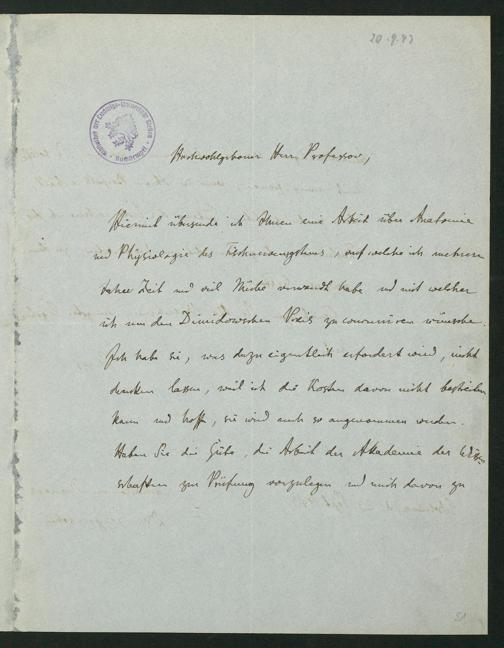 20.9.43
Hochwohlgeborner Herr Professor,
Hiermit übersende ich Ihnen eine Arbeit über Anatomie
und Physiologie des, auf welche ich mehrere
Jahre Zeit und viel Mühe verwandt habe und mit welcher
ich um den Demidowschen Preis zu concurriren wünsche.
Ich habe sie, was dazu eigentlich erfordert wird, nicht
drucken lassen, weil ich die Kosten davon nicht bestreiten
kann und hoffe, sie wird auch so angenommen werden.
Haben Sie die Güte, die Arbeit der Akademie der Wissen-
schaften zur Prüfung vorzulegen und mich davon zu
51